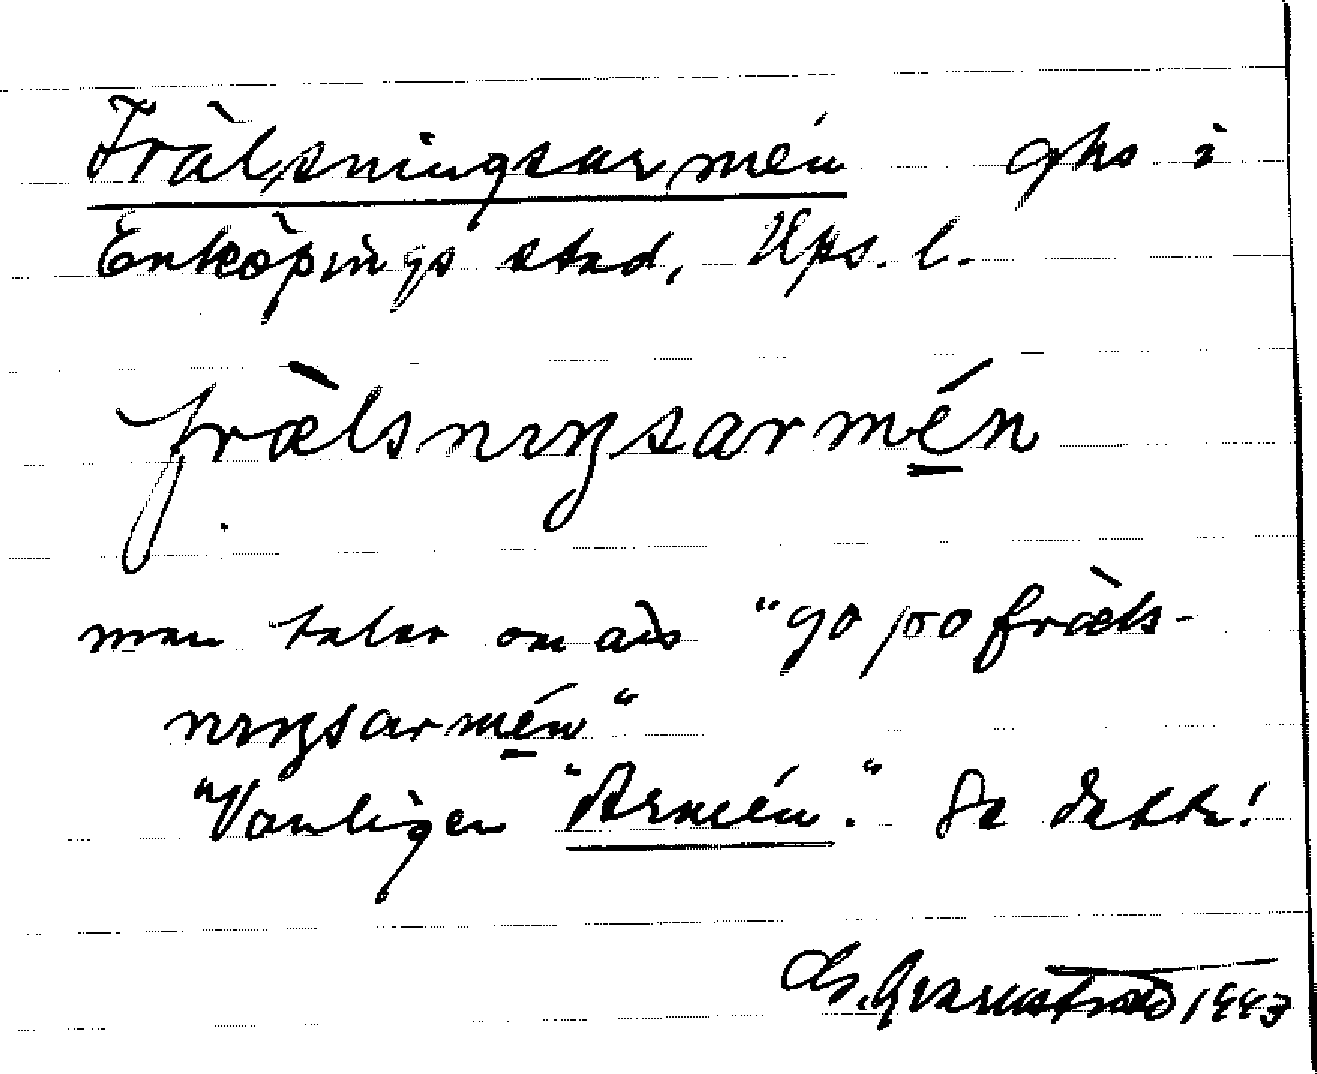 Frälsningsarmén ghs i
Enköpings stad, Ups. l.
fræ̀lsnıŋsarmén
man talar om att "go po fræ̀ls-
nıŋsarmén"
"Vanligen "Armén." Se detta!
1993